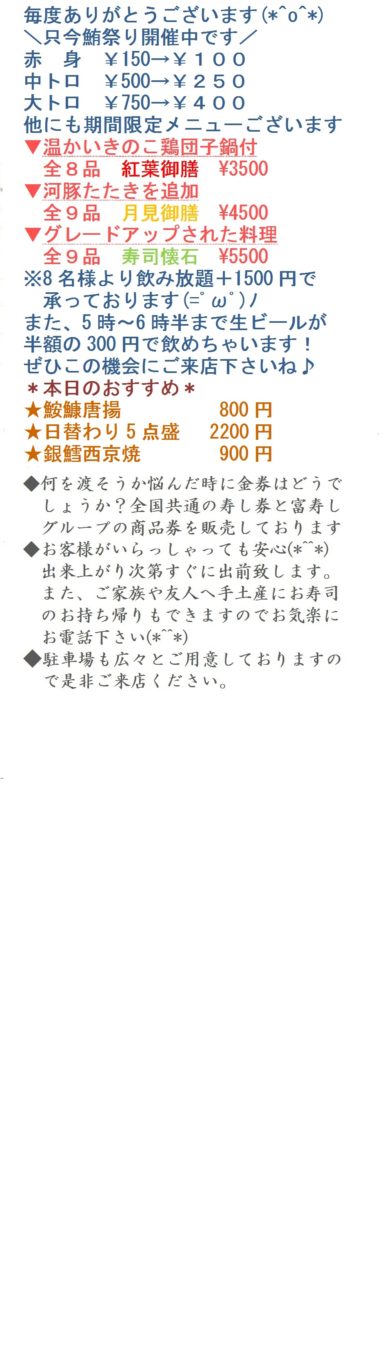 毎度ありがとうございます(*^o^*)
＼只今鮪祭り開催中です／
赤　身　￥150→￥１００
中トロ　￥500→￥２５０
大トロ　￥750→￥４００
他にも期間限定メニューございます
▼温かいきのこ鶏団子鍋付
全８品　紅葉御膳　¥3500
▼河豚たたきを追加
全９品　月見御膳　¥4500
▼グレードアップされた料理
全９品　寿司懐石　¥5500
※8名様より飲み放題＋1500円で
承っております(=ﾟωﾟ)ﾉ
また、5時～6時半まで生ビールが
半額の300円で飲めちゃいます！
ぜひこの機会にご来店下さいね♪
＊本日のおすすめ＊
★鮟鱇唐揚　800円
★日替わり5点盛　2200円
★銀鱈西京焼　900円
◆何を渡そうか悩んだ時に金券はどうで
しょうか？全国共通の寿し券と富寿し
グループの商品券を販売しております
◆お客様がいらっしゃっても安心(*^^*)
出来上がり次第すぐに出前致します。
また、ご家族や友人へ手土産にお寿司
のお持ち帰りもできますのでお気楽に
お電話下さい(*^^*)
◆駐車場も広々とご用意しておりますの
で是非ご来店ください。